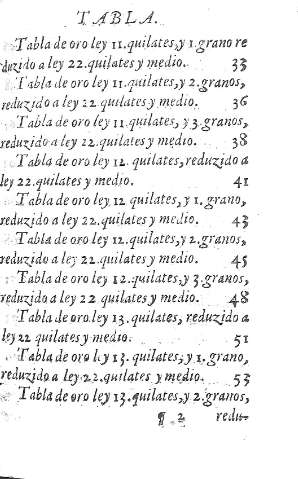 TABLA.
Tabla de oro ley 11. quilates, y 1. grano re
duzido a ley 22. quilates y medio. 33
Tabla de oro ley 11. quilates, y 2. granos,
reduzido a ley 22 quilates y medio. 36
Tabla de oro ley 11. quilates, y 3. granos,
reduzido a ley 22. quilates y medio. 38
Tabla de oro ley 12. quilates, reduzido a
ley 22. quilates y medio. 41
Tabla de oro ley 12 quilates, y 1. grano,
reduzido a ley 22. quilates y medio. 43
Tabla de oro ley 12. quilates, y 2. granos,
reduzido a ley 22. quilates y medio. 45
Tabla de oro ley 12. quilates, y 3. granos,
reduzido a ley 22 quilates y medio. 48
Tabla de oro ley 13. quilates, reduzido a
ley 22 quilates y medio. 51
Tabla de oro ley 13. quilates, y 1. grano,
reduzido a ley 22. quilates y medio. 53
Tabla de oro ley 13. quilates, y 2. granos,
¶ 2 redu-